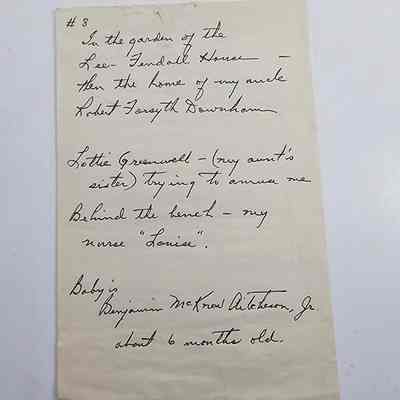 # 3
In the garden of the
Lee-Fendall House -
then the home of my uncle
Robert Forsyth Downham
Lottie Greenwell - (my aunt's
sister) trying to amuse me
Behind the bench - my
nurse "Louise".
Baby is
Benjamin McKnew Aitcheson, Jr.
about 6 months old.